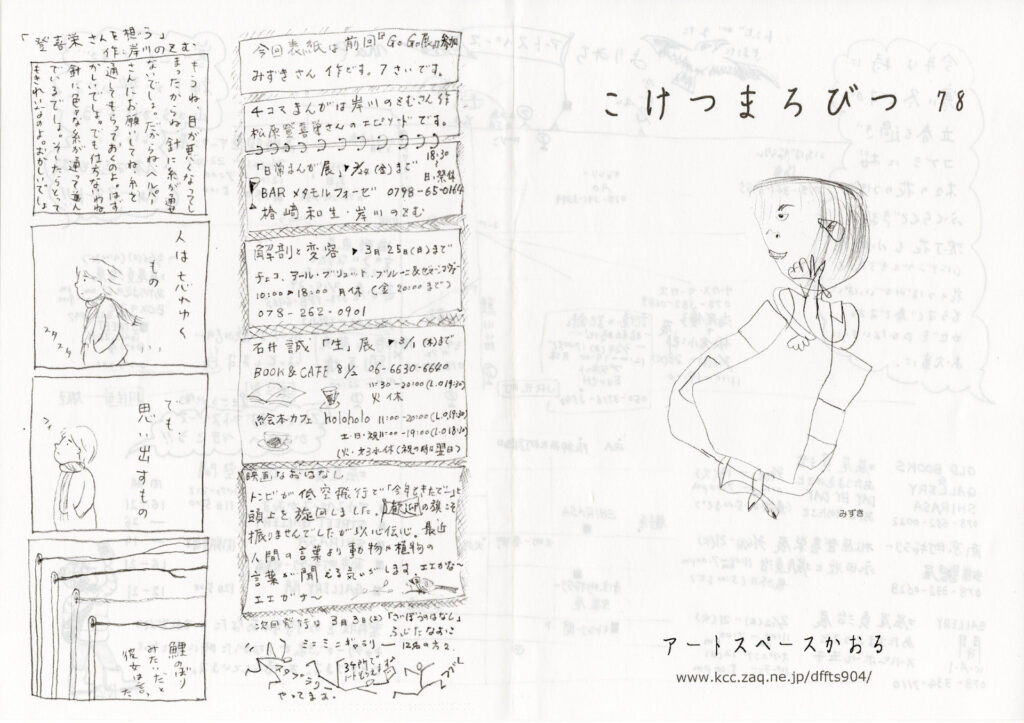 こけつまろびつ 78
みずき
アートスペースかおる
www.kcc.zaq.ne.jp/dffts904/
今回表紙は前回『GoGo展』参加
みずきさん 作です。7さいです。
4コマまんがは岸川のぞむさん作
松原登喜栄さんのエピソードです。
「日常まんが展」
18:30
日・祭休
BAR メタモルフォーゼ 0798-65-0164
楢崎和生・岸川のぞむ
解剖と変容 ▶3月25日(日)まで
チェコ、アール・ブリュット、
10:00▶18:00 月休 (金 20:00まで)
078-262-0901
石井誠「生」展 ▶3/1(木)まで
BOOK & CAFE 8½ 06-6630-6640
11:30-20:00 (L.O 19:30)
火休
絵本カフェ holoholo 11:00-20:00 (L.O 19:30)
土・日・祝 11:00-19:00 (L.O 18:30)
映画なおはなし
トンビが低空飛行で「今年もきたでー」と
頭上を旋回しました。歓迎の旗こそ
振りませんでしたが以心伝心。最近
人間の言葉より動物や植物の
言葉が聞える気がします。エエかな〜
エエガナ〜
次回発行は 3月3日(土)「ごぼうのはなし」
ふじたなおこ
12名の方々
ミニミニギャラリー
やってます。
「登喜栄さんを想う」
作:岸川のぞむ
もうね、目が悪くなってし
まったからね 針に糸が通せ
ないでしょ だからね ヘルパー
さんにお願いしてね 糸を
通してもらっておくのよ。はず
かしいでしょ。でも仕方ないわね
針に色々な糸が通って並ん
でいるでしょ、そしたらとって
もきれいなのよ。おかしいでしょ
人は忘れゆく
もの
スタスタ
でも、
思い出すもの
鯉のぼり
みたいだと
彼女は言った